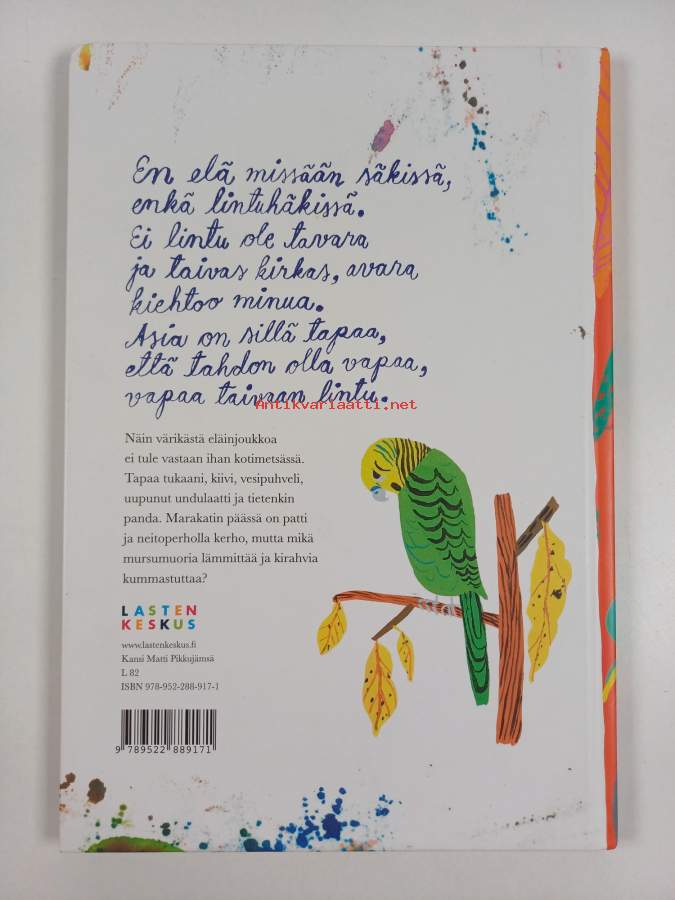 En elä missään säkissä,
enkä lintuhäkissä.
Ei lintu ole tavara
ja taivas kirkas, avara
kiehtoo minua.
Asia on sillä tapaa,
että tahdon olla vapaa,
vapaa taivaan lintu.
Antikvariaatti.net
Näin värikästä eläinjoukkoa
ei tule vastaan ihan kotimetsässä.
Tapaa tukaani, kiivi, vesipuhveli,
uupunut undulaatti ja tietenkin
panda. Marakatin päässä on patti
ja neitoperholla kerho, mutta mikä
mursumuoria lämmittää ja kirahvia
kummastuttaa?
LASTEN
KESKUS
www.lastenkeskus.fi
Kansi Matti Pikkujämsä
L 82
ISBN 978-952-288-917-1
9 789522 889171